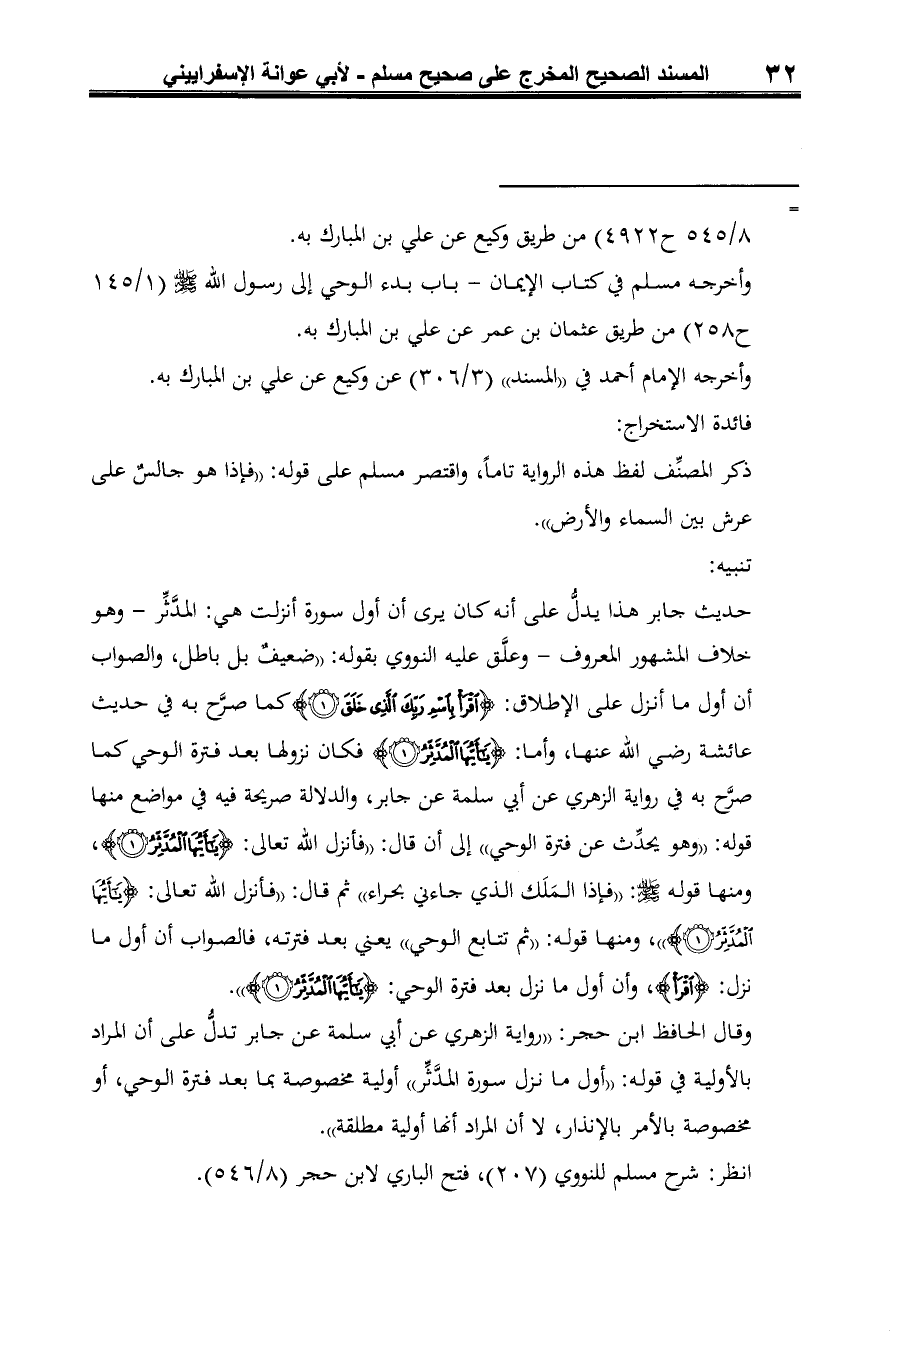 ٣٢ المسند الصحيح المخرج على صحيح مسلم - لأبي عوانة الإسفراييني
=
٥٤٥/٨ ح٤٩٢٢) من طريق وكيع عن علي بن المبارك به.
وأخرجه مسلم في كتاب الإيمان - باب بدء الوحي إلى رسول الله ﷺ (١٤٥/١
ح٢٥٨) من طريق عثمان بن عمر عن علي بن المبارك به.
وأخرجه الإمام أحمد في ((المسند)) (٣٠٦/٣) عن وكيع عن علي بن المبارك به.
فائدة الاستخراج:
ذكر المصنِّف لفظ هذه الرواية تاماً، واقتصر مسلم على قوله: ((فإذا هو جالسٌ على
عرش بين السماء والأرض)).
تنبيه:
حديث جابر هذا يدلُّ على أنه كان يرى أن أول سورة أنزلت هي: المدَّثِّر - وهو
خلاف المشهور المعروف - وعلَّق عليه النووي بقوله: ((ضعيفٌ بل باطل، والصواب
أن أول ما أنزل على الإطلاق: ﴿ٱقْرَأْ بِٱسْمِ رَبِّكَ ٱلَّذِى خَلَقَ ١﴾ كما صرَّح به في حديث
عائشة رضي الله عنها، وأما: ﴿يَٰٓأَيُّهَا ٱلْمُدَّثِّرُ ١﴾ فكان نزولها بعد فترة الوحي كما
صرَّح به في رواية الزهري عن أبي سلمة عن جابر، والدلالة صريحة فيه في مواضع منها
قوله: ((وهو يحدِّث عن فترة الوحي)) إلى أن قال: ((فأنزل الله تعالى: ﴿يَٰٓأَيُّهَا ٱلْمُدَّثِّرُ ١﴾،
ومنها قوله ﷺ: ((فإذا المَلَك الذي جاءني بحراء)) ثم قال: ((فأنزل الله تعالى: ﴿يَٰٓأَيُّهَا
ٱلْمُدَّثِّرُ ١﴾))، ومنها قوله: ((ثم تتابع الوحي)) يعني بعد فترته، فالصواب أن أول ما
نزل: ﴿ٱقْرَأْ﴾، وأن أول ما نزل بعد فترة الوحي: ﴿يَٰٓأَيُّهَا ٱلْمُدَّثِّرُ ١﴾)).
وقال الحافظ ابن حجر: ((رواية الزهري عن أبي سلمة عن جابر تدلُّ على أن المراد
بالأولية في قوله: ((أول ما نزل سورة المدَّثِّر)) أولية مخصوصة بما بعد فترة الوحي، أو
مخصوصة بالأمر بالإنذار، لا أن المراد أنها أولية مطلقة)).
انظر: شرح مسلم للنووي (٢٠٧)، فتح الباري لابن حجر (٥٤٦/٨).